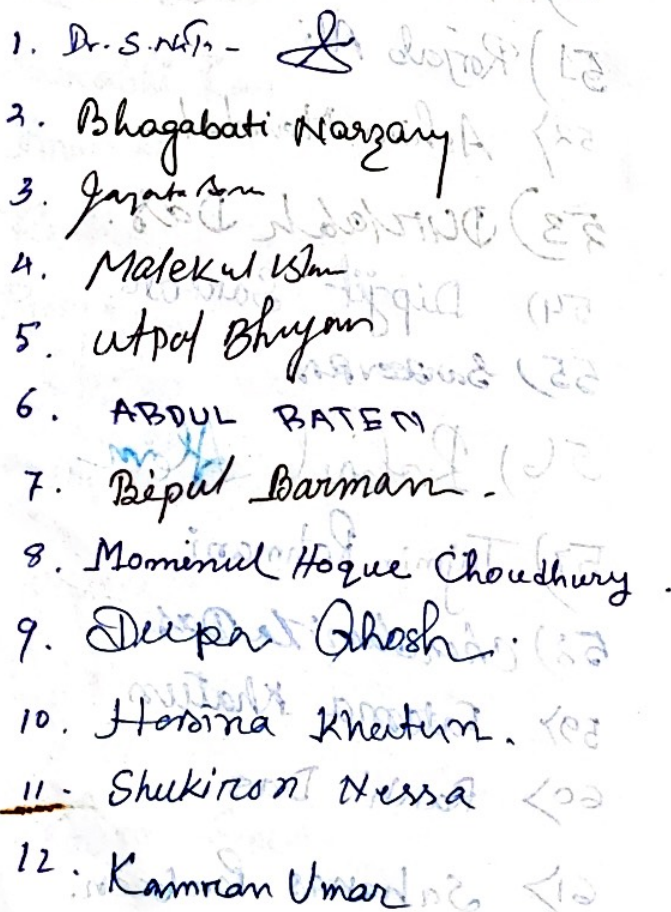 1. Dr. S. Nath -
2. Bhagabati Narzary
3. Jayanta
4. Malekul Islam
5. Utpal Bhuyan
6. ABDUL BATEN
7. Bipul Barman.
8. Mominul Hoque Choudhury.
9. Deepa Ghosh.
10. Hasina Khatun.
11. Shukiron Nessa
12. Kamran Umar